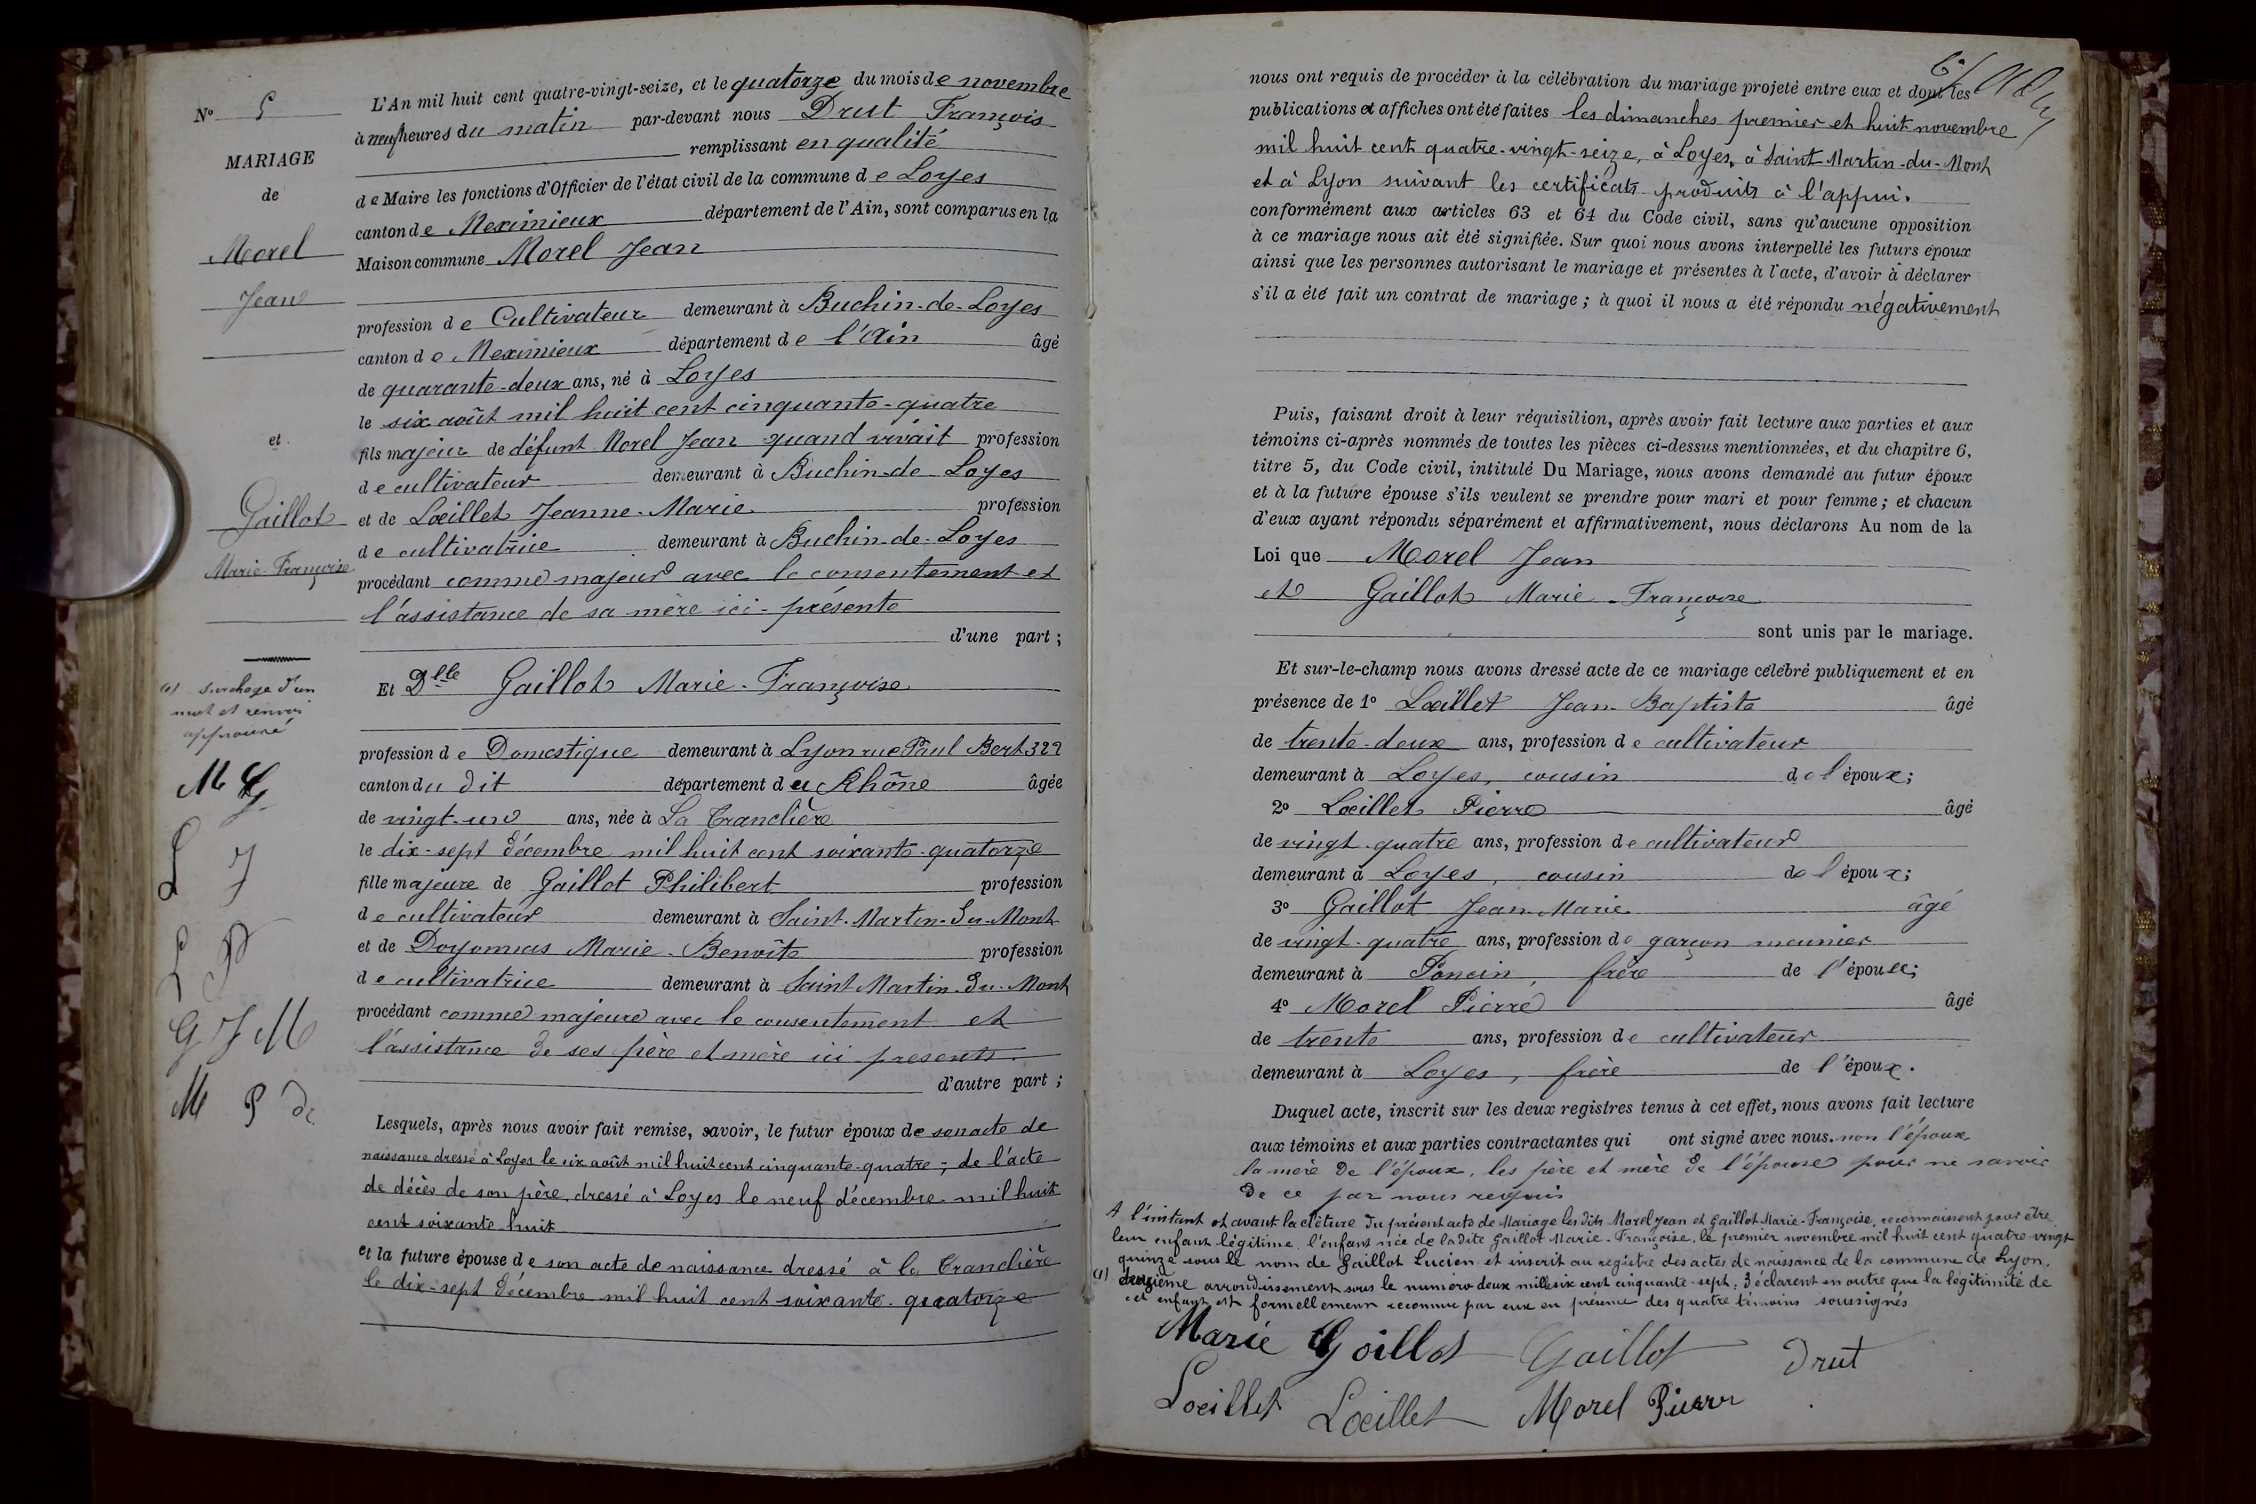 N° 5
MARIAGE
de
Morel
Jean
et
Gaillot
Marie-Françoise
(1) Surcharge d'un
mot et renvoi
approuvé
M G
L J
L P
G J M
M P Dr
L'An mil huit cent quatre-vingt-seize, et le quatorze du mois de novembre
à neuf heures du matin par-devant nous Drut François
remplissant en qualité
de Maire les fonctions d'Officier de l'état civil de la commune de Loyes
canton de Meximieux département de l'Ain, sont comparus en la
Maison commune Morel Jean
profession de Cultivateur demeurant à Buchin-de-Loyes
canton de Meximieux département de l'Ain âgé
de quarante-deux ans, né à Loyes
le six août mil huit cent cinquante-quatre
fils majeur de défunt Morel Jean quand vivait profession
de cultivateur demeurant à Buchin-de Loyes
et de Lœillet Jeanne-Marie profession
de cultivatrice demeurant à Buchin-de-Loyes
procédant comme majeur avec le consentement et
l'assistance de sa mère ici-présente
d'une part ;
Et Dlle Gaillot Marie-Françoise
profession de Domestique demeurant à Lyon rue Paul Bert 322
canton du dit département du Rhône âgée
de vingt-un ans, née à La Tranclière
le dix-sept décembre mil huit cent soixante-quatorze
fille majeure de Gaillot Philibert profession
de cultivateur demeurant à Saint-Martin-du-Mont
et de Doyonnas Marie-Benoîte profession
de cultivatrice demeurant à Saint Martin-du-Mont
procédant comme majeure avec le consentement et
l'assistance de ses père et mère ici présents.
d'autre part ;
Lesquels, après nous avoir fait remise, savoir, le futur époux de son acte de
naissance dressé à Loyes le six août mil huit cent cinquante-quatre ; de l'acte
de décès de son père, dressé à Loyes le neuf décembre mil huit
cent soixante huit
et la future épouse de son acte de naissance dressé à la Tranclière
le dix-sept décembre mil huit cent soixante-quatorze
nous ont requis de procéder à la célébration du mariage projeté entre eux et dont les
publications et affiches ont été faites les dimanches premier et huit novembre
mil huit cent quatre-vingt-seize, à Loyes, à Saint Martin-du-Mont
et à Lyon suivant les certificats produits à l'appui.
conformément aux articles 63 et 64 du Code civil, sans qu'aucune opposition
à ce mariage nous ait été signifiée. Sur quoi nous avons interpellé les futurs époux
ainsi que les personnes autorisant le mariage et présentes à l'acte, d'avoir à déclarer
s'il a été fait un contrat de mariage ; à quoi il nous a été répondu négativement
Puis, faisant droit à leur réquisition, après avoir fait lecture aux parties et aux
témoins ci-après nommés de toutes les pièces ci-dessus mentionnées, et du chapitre 6,
titre 5, du Code civil, intitulé Du Mariage, nous avons demandé au futur époux
et à la future épouse s'ils veulent se prendre pour mari et pour femme ; et chacun
d'eux ayant répondu séparément et affirmativement, nous déclarons Au nom de la
Loi que Morel Jean
et Gaillot Marie-Françoise
sont unis par le mariage.
Et sur-le-champ nous avons dressé acte de ce mariage célébré publiquement et en
présence de 1° Lœillet Jean-Baptiste âgé
de trente-deux ans, profession de cultivateur
demeurant à Loyes, cousin de l'époux ;
2° Lœillet Pierre âgé
de vingt-quatre ans, profession de cultivateur
demeurant à Loyes, cousin de l'époux ;
3° Gaillot Jean-Marie âgé
de vingt-quatre ans, profession de garçon meunier
demeurant à Poncin, frère de l'épouse ;
4° Morel Pierre âgé
de trente ans, profession de cultivateur
demeurant à Loyes, frère de l'époux.
Duquel acte, inscrit sur les deux registres tenus à cet effet, nous avons fait lecture
aux témoins et aux parties contractantes qui ont signé avec nous. non l'époux,
la mère de l'époux, les père et mère de l'épouse pour ne savoir
de ce par nous requis
A l'instant et avant la clôture du présent acte de Mariage les dits Morel Jean et Gaillot Marie-Françoise, reconnaissent pour être
leur enfant légitime, l'enfant née de la dite Gaillot Marie-Françoise, le premier novembre mil huit cent quatre-vingt
quinze sous le nom de Gaillot Lucien et inscrit au registre des actes de naissance de la commune de Lyon,
(1) deuxième arrondissement sous le numéro deux mille six cent cinquante-sept ; déclarent en outre que la légitimité de
cet enfant est formellement reconnue par eux en présence des quatre témoins soussignés
Marie Gaillot Gaillot Drut
Loeillet Lœillet Morel Pierre